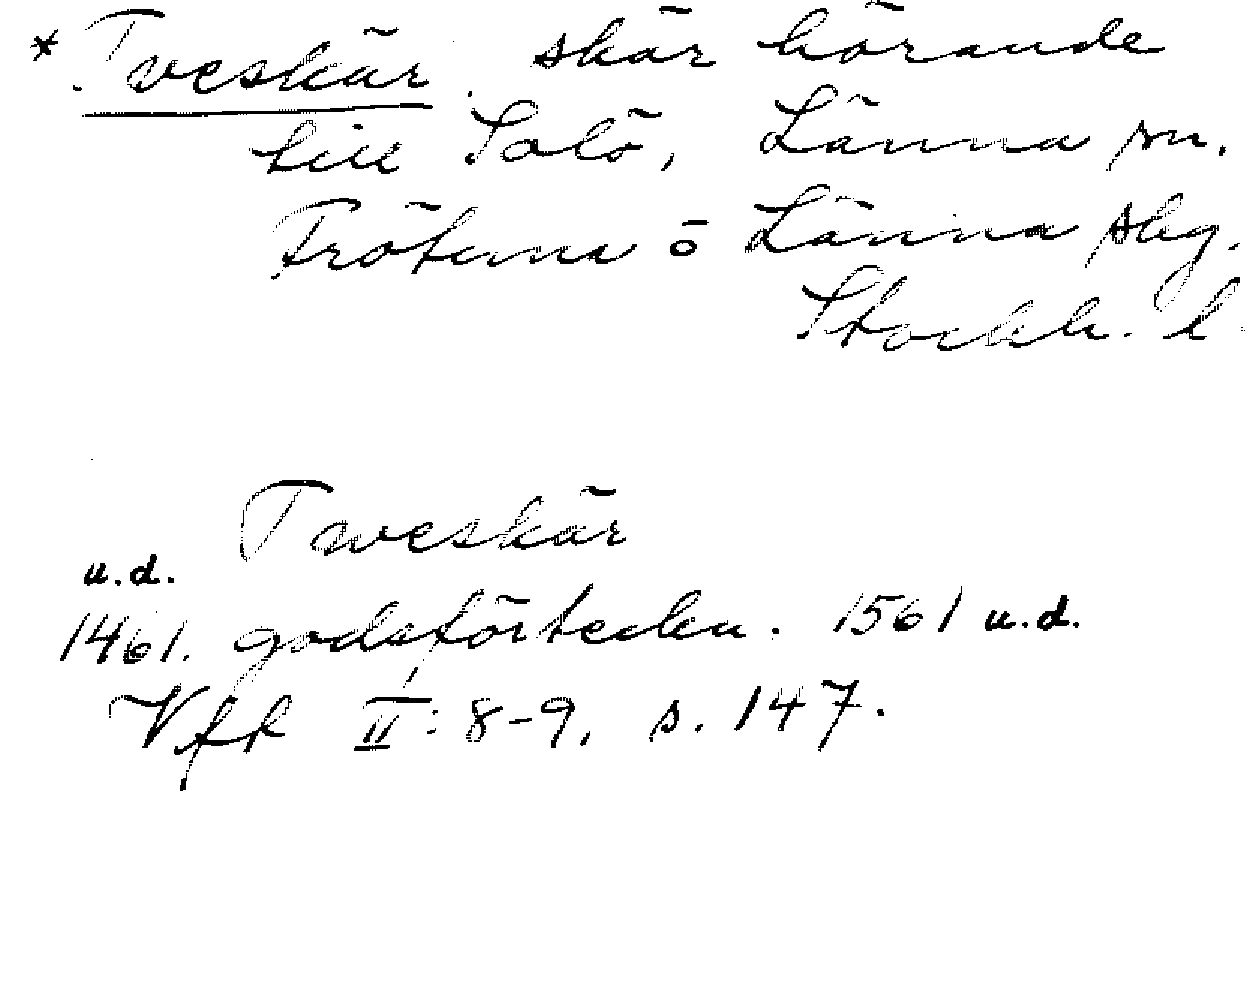 * Tveskär. skär hörande
till Salö, Länna sn.
Frötuna o Länna skg.
Stockh. l.
Tweskär
u.d.
1461. godsförteckn. 1561 u.d.
Vff II: 8-9. s. 147.